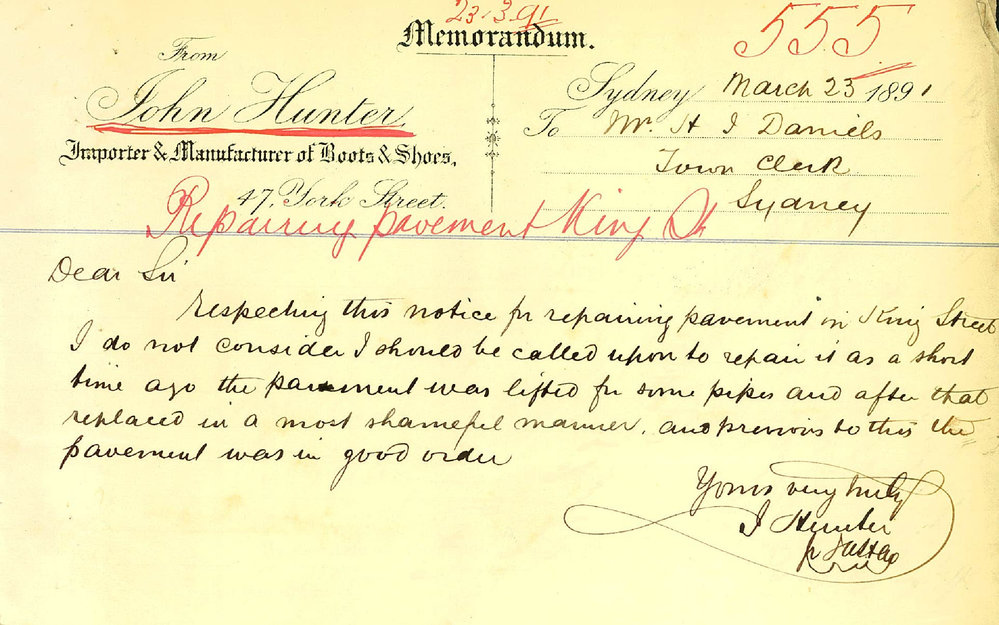 23.3.91
555
Memorandum.
From
John Hunter,
Importer & Manufacturer of Boots & Shoes,
47, York Street.
Sydney March 23 1891
To Mr. H I Daniels
Town Clerk
Sydney
Repairing pavement King St
Dear Sir
Respecting this notice for repairing pavement in King Street
I do not consider I should be called upon to repair it as a short
time ago the pavement was lifted for some pipes and after that
replaced in a most shameful manner, and previous to this the
pavement was in good order
Yours very truly
J Hunter